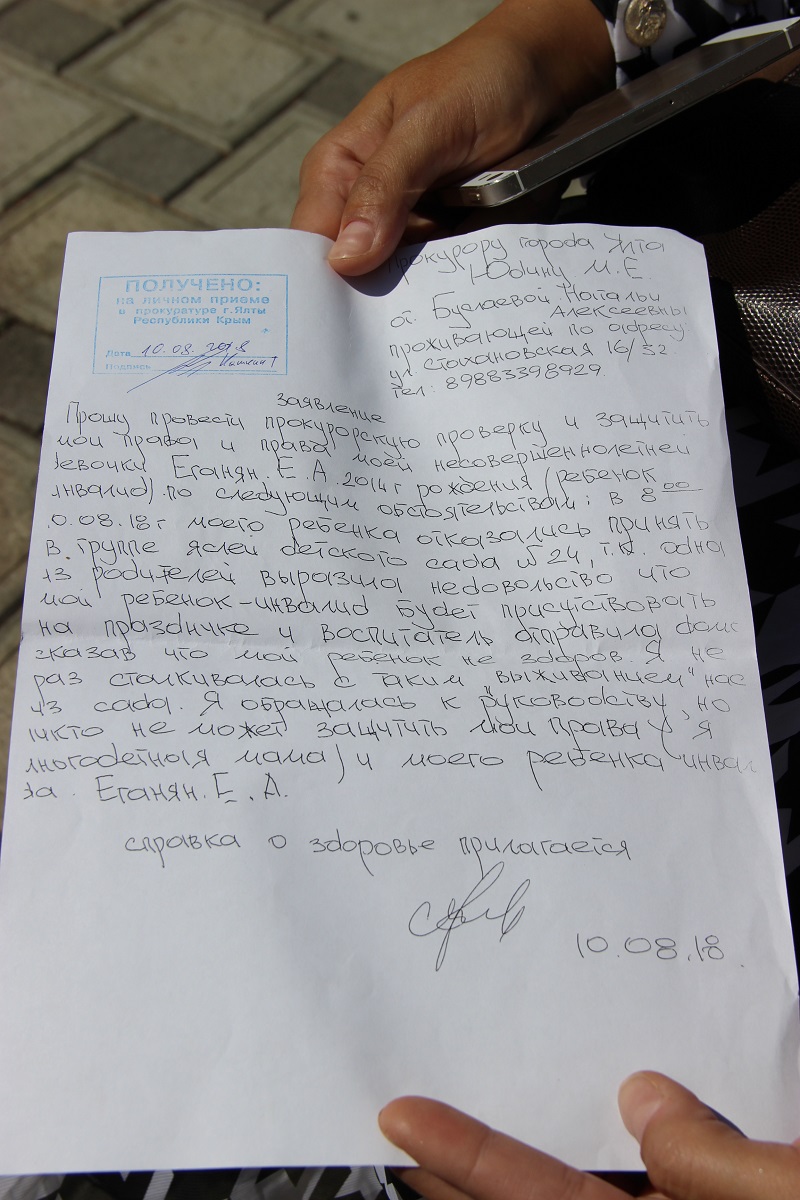 ПОЛУЧЕНО:
на личном приеме
в прокуратуре г.Ялты
Республики Крым
Дата 10.08.2018
Подпись
прокурору города Ялта
Юдину М.Е.
от Буслаевой Натальи
Алексеевны
проживающей по адресу
ул Стахановская 16/32
тел: 89883398929.
заявление
Прошу провести прокурорскую проверку и защитить
мои права и права моей несовершеннолетней
девочки Еганян. Е.А. 2014г рождения (ребенок
инвалид) по следующим обстоятельствам: в 8 00
10.08.18г моего ребенка отказались принять
в группе яслей детского сада №24, т.к. одна
из родителей выразила недовольство что
мой ребенок-инвалид будет присутствовать
на праздничке и воспитатель отправила домо
сказав что мой ребенок не здоров. Я не
раз сталкивалась с таким "выживанием" нас
из сада. Я обращалась к руководству, но
никто не может защитить мои права (я
многодетная мама) и моего ребенка инвал
да. Еганян. Е.А.
справка о здоровье прилагается
10.08.18.